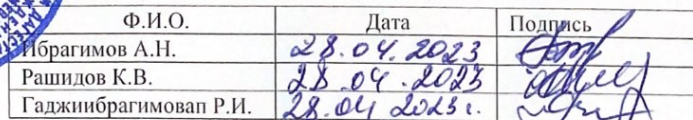 Ф.И.О. Дата Подпись
Ибрагимов А.Н. 28.04.2023
Рашидов К.В. 28.04.2023
Гаджиибрагимовап Р.И. 28.04 2023 г.